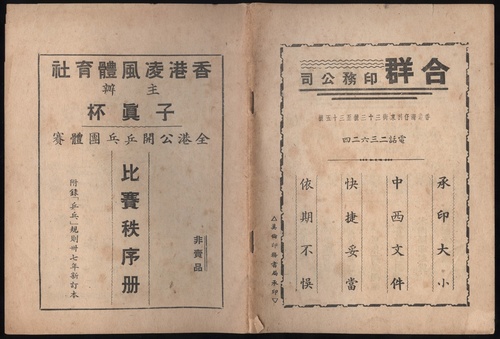 合群印務公司
電話二三六二四
承印大小
中西文件
快捷妥當
依期不悞
香港凌風體育社
主辦
子眞杯
全港公開乒乓團體賽
非賣品
比賽秩序册
附錄「乒乓」規則卅七年新訂本